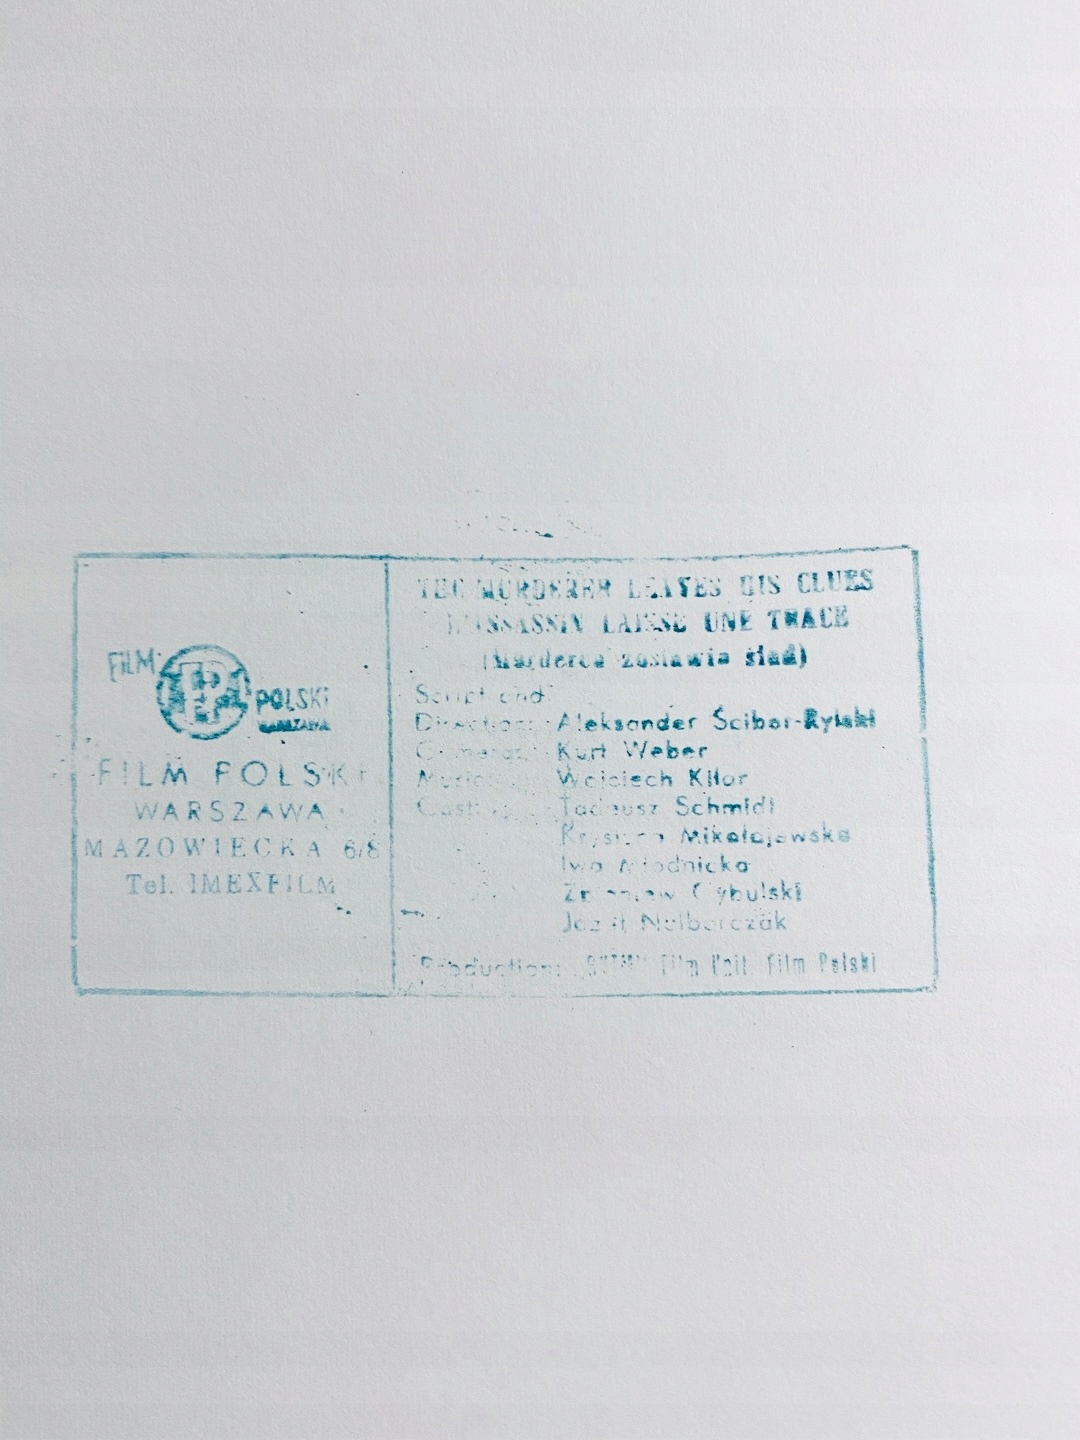 FILM
POLSKI
WARSZAWA
FILM POLSKI
WARSZAWA
MAZOWIECKA 6/8
Tel. IMEXFILM
THE MURDERER LEAVES HIS CLUES
L'ASSASSIN LAISSE UNE TRACE
(Morderca zostawia ślad)
Script and
Direction: Aleksander Ścibor-Rylski
Camera: Kurt Weber
Music: Wojciech Kilar
Cast: Tadeusz Schmidt
Krystyna Mikołajewska
Iwa Młodnicka
Zbigniew Cybulski
Józef Nalberczak
Production: "RYTM" Film Unit Film Polski